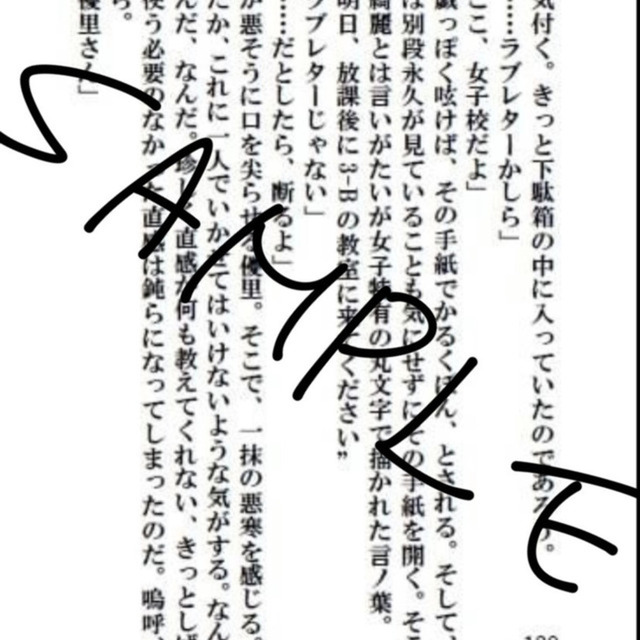 気付く。きっと下駄箱の中に入っていたのであろう。
……ラブレターかしら」
ここ、女子校だよ」
戯っぽく呟けば、その手紙でかるくぽん、とされる。そして、
は別段永久が見ていることも気にせずにその手紙を開く。そこ
綺麗とは言いがたいが女子特有の丸文字で描かれた言ノ葉。
明日、放課後に3-Bの教室に来てください”
ラブレターじゃない」
……だとしたら、断るよ」
が悪そうに口を尖らせる優里。そこで、一抹の悪寒を感じる。
たか、これに一人でいかせてはいけないような気がする。なん
んだ、なんだ。珍しく直感が何も教えてくれない、きっとしば
使う必要のなかった直感は鈍らになってしまったのだ。嗚呼、
ら。
優里さん」
SAMPLE